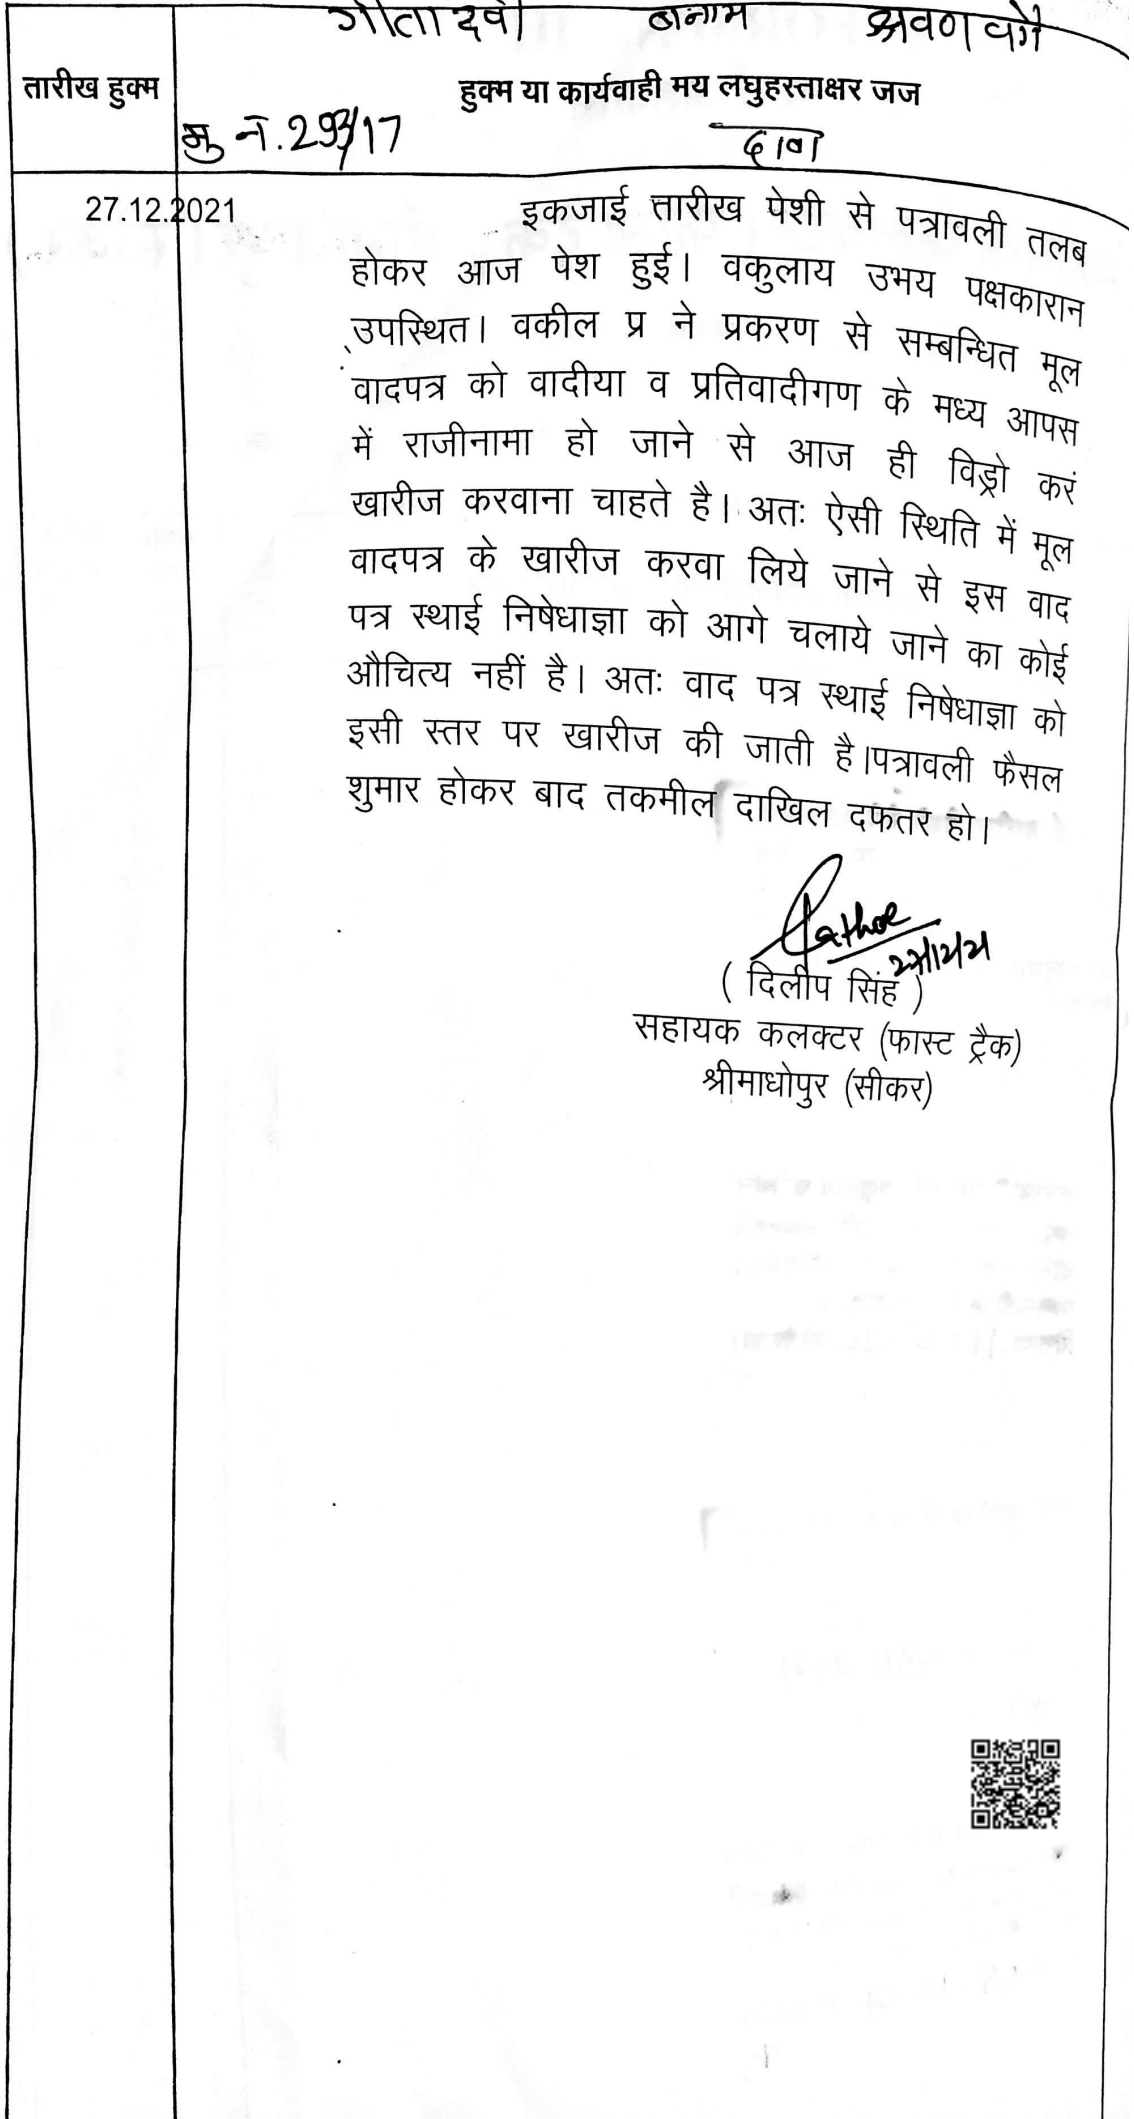 गीता देवी बनाम श्रवण वगै
तारीख हुक्म
हुक्म या कार्यवाही मय लघुहस्ताक्षर जज
मु नं. 293/17
दावा
27.12.2021
इकजाई तारीख पेशी से पत्रावली तलब
होकर आज पेश हुई। वकुलाय उभय पक्षकारान
उपस्थित। वकील प्र ने प्रकरण से सम्बन्धित मूल
वादपत्र को वादीया व प्रतिवादीगण के मध्य आपस
में राजीनामा हो जाने से आज ही विड्रो करं
खारीज करवाना चाहते है। अतः ऐसी स्थिति में मूल
वादपत्र के खारीज करवा लिये जाने से इस वाद
पत्र स्थाई निषेधाज्ञा को आगे चलाये जाने का कोई
औचित्य नहीं है। अतः वाद पत्र स्थाई निषेधाज्ञा को
इसी स्तर पर खारीज की जाती है।पत्रावली फैसल
शुमार होकर बाद तकमील दाखिल दफतर हो।
( दिलीप सिंह )
सहायक कलक्टर (फास्ट ट्रैक)
श्रीमाधोपुर (सीकर)